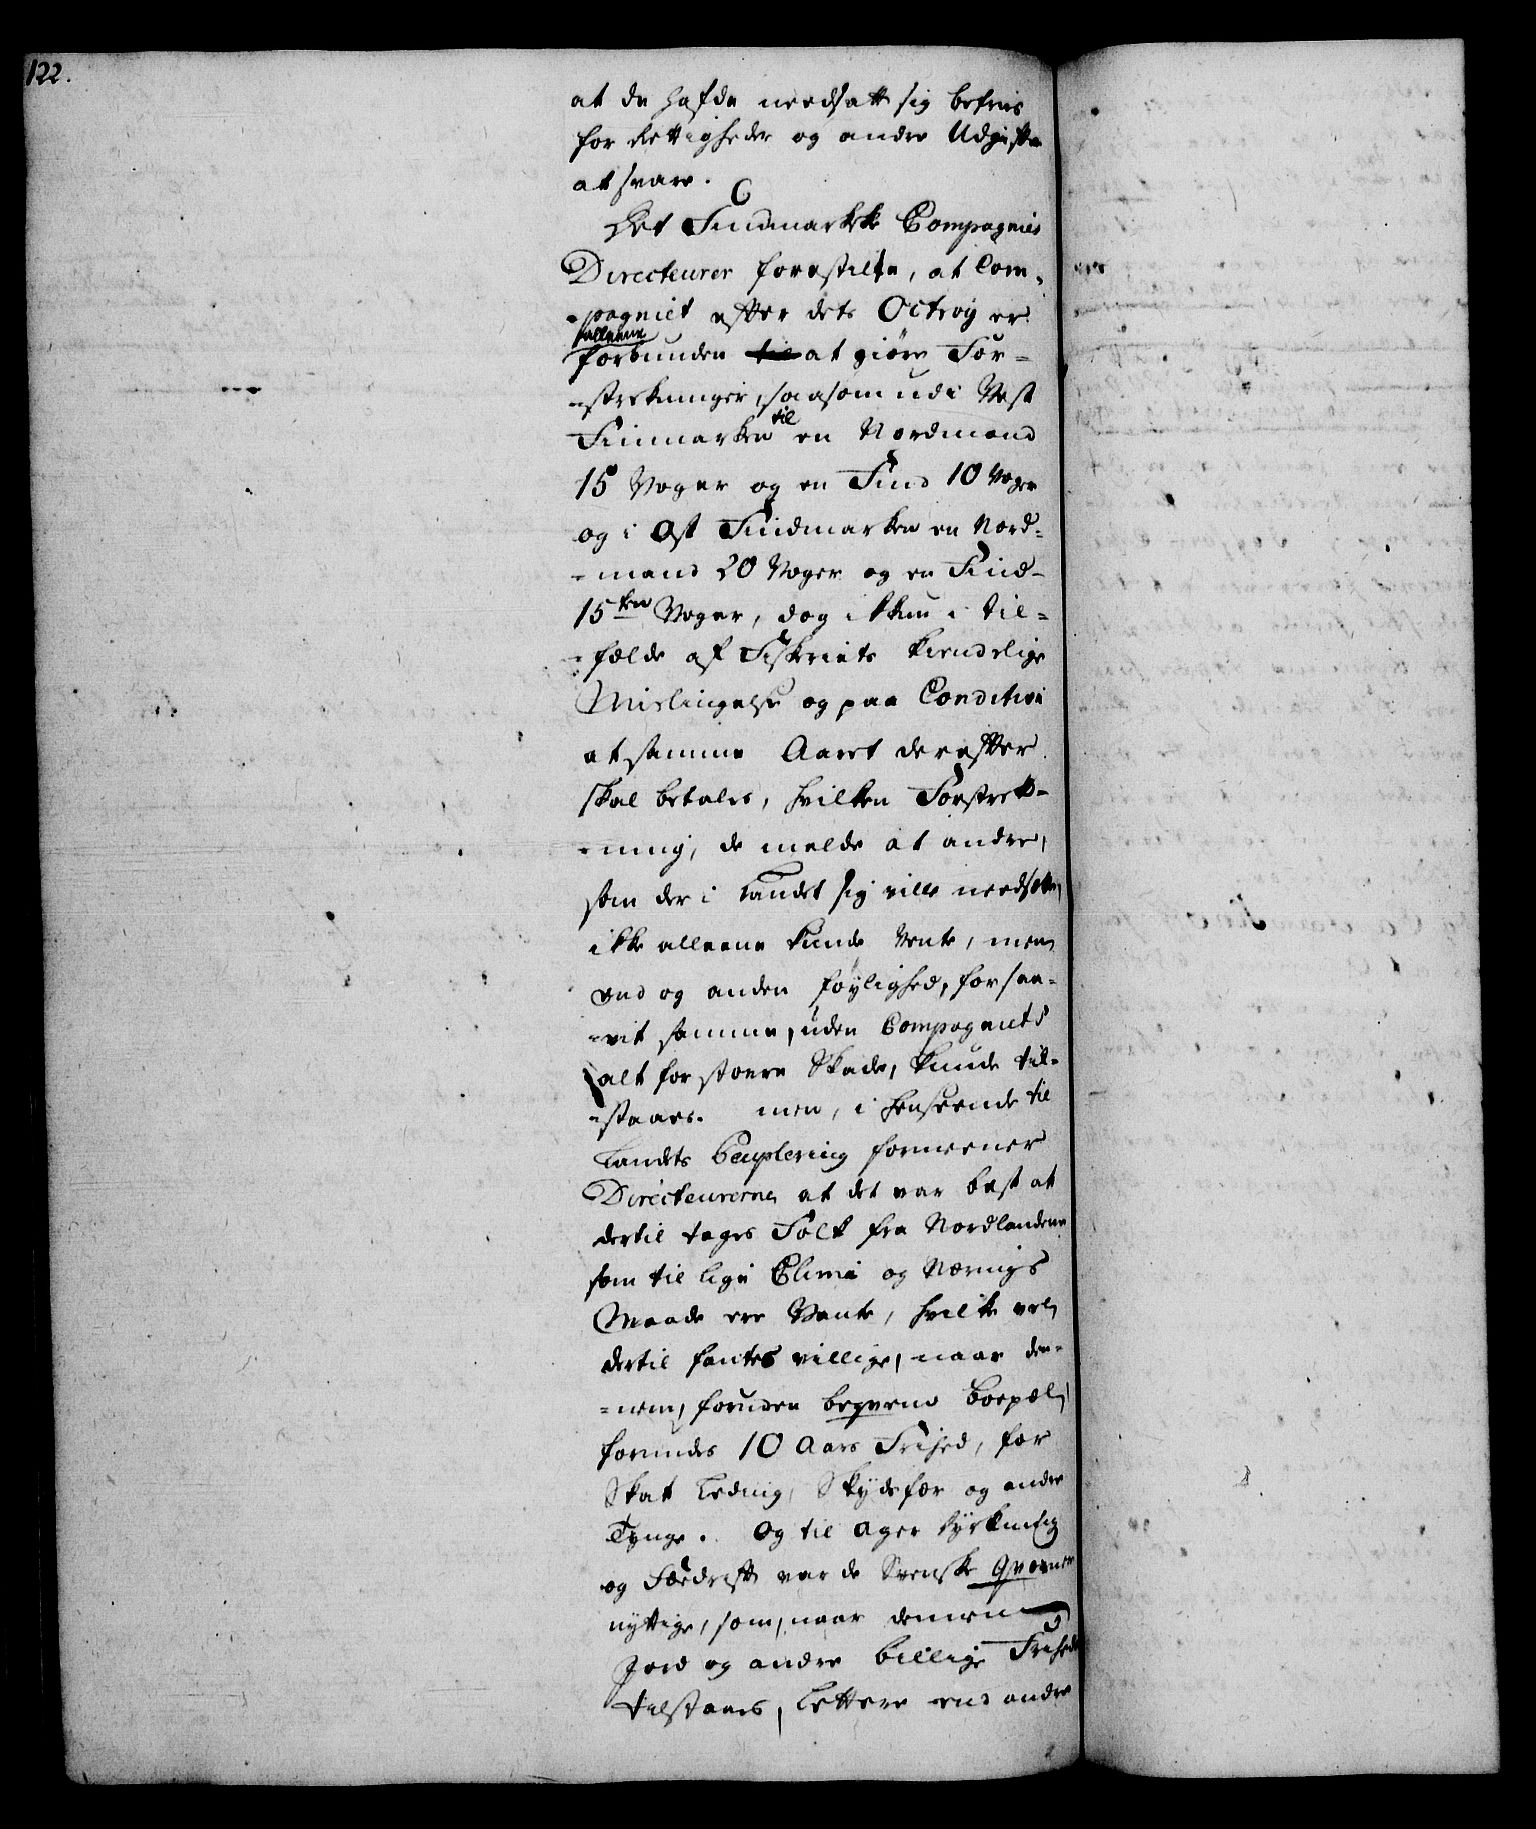 122.
at de hafde needsatt sig befries
for Rettigheder og andre Udgifter
at svare.
Det Findmarkske Compagnies
Directeurer forestilte, at Com-
-pagniet effter dets Octroy er
alleene
forbunden til at giøre For-
-strekninger, saasom udi Vest
Finmarken til en Nordmand
15 Voger og en Find 10 Voger
og i Ost Findmarken en Nord-
-mand 20 Voger og en Find
15ten Voger, dog ikkun i til-
-fælde af Fiskeriets kiendelige
Mislingelse og paa Condition
at samme Aaret derefter
skal betales, hvilken Forstrek-
-ning, de melde at andre,
som der i Landet sig ville needsette,
ikke alleene kunde vente, men
end og anden føylighed, forsaa-
-vit samme, uden Compagniets
alt for stoere Skade, kunde til-
-staaes. men, i henseende til
Landets Peuplering formeener
Directeurerne at det var best at
dertil toges Folk fra Nordlandene
som til lige Clima og Nærings
Maade ere vante, hvilke vel
dertil fantes villige, naar den-
-nem, foruden beqvem Boepæl,
forundes 10 Aars Frihed, for
Skat Leding, Skydsfær og andre
Tynge. Og til Ager dyrkning
og Fædrift var de Svenske Qvæner
nyttige, som, naar dennem
Jord og andre billige Friheder
tilstaaes, lettere end andre